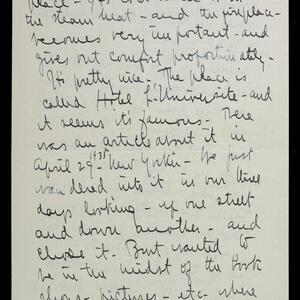 place -
the steam heat - and the fireplace -
becomes very important - and
gives out comfort proportionately.
It's pretty nice. The place is
called Hotel L'Universite - and
it seems it's famous. There
was an article about it in
April 29 - 1938 New Yorker - We just
wandered into it in our three
days looking - up one street
and down another - and
chose it. But wanted to
be in the midst of the book
shops - pictures - etc - where